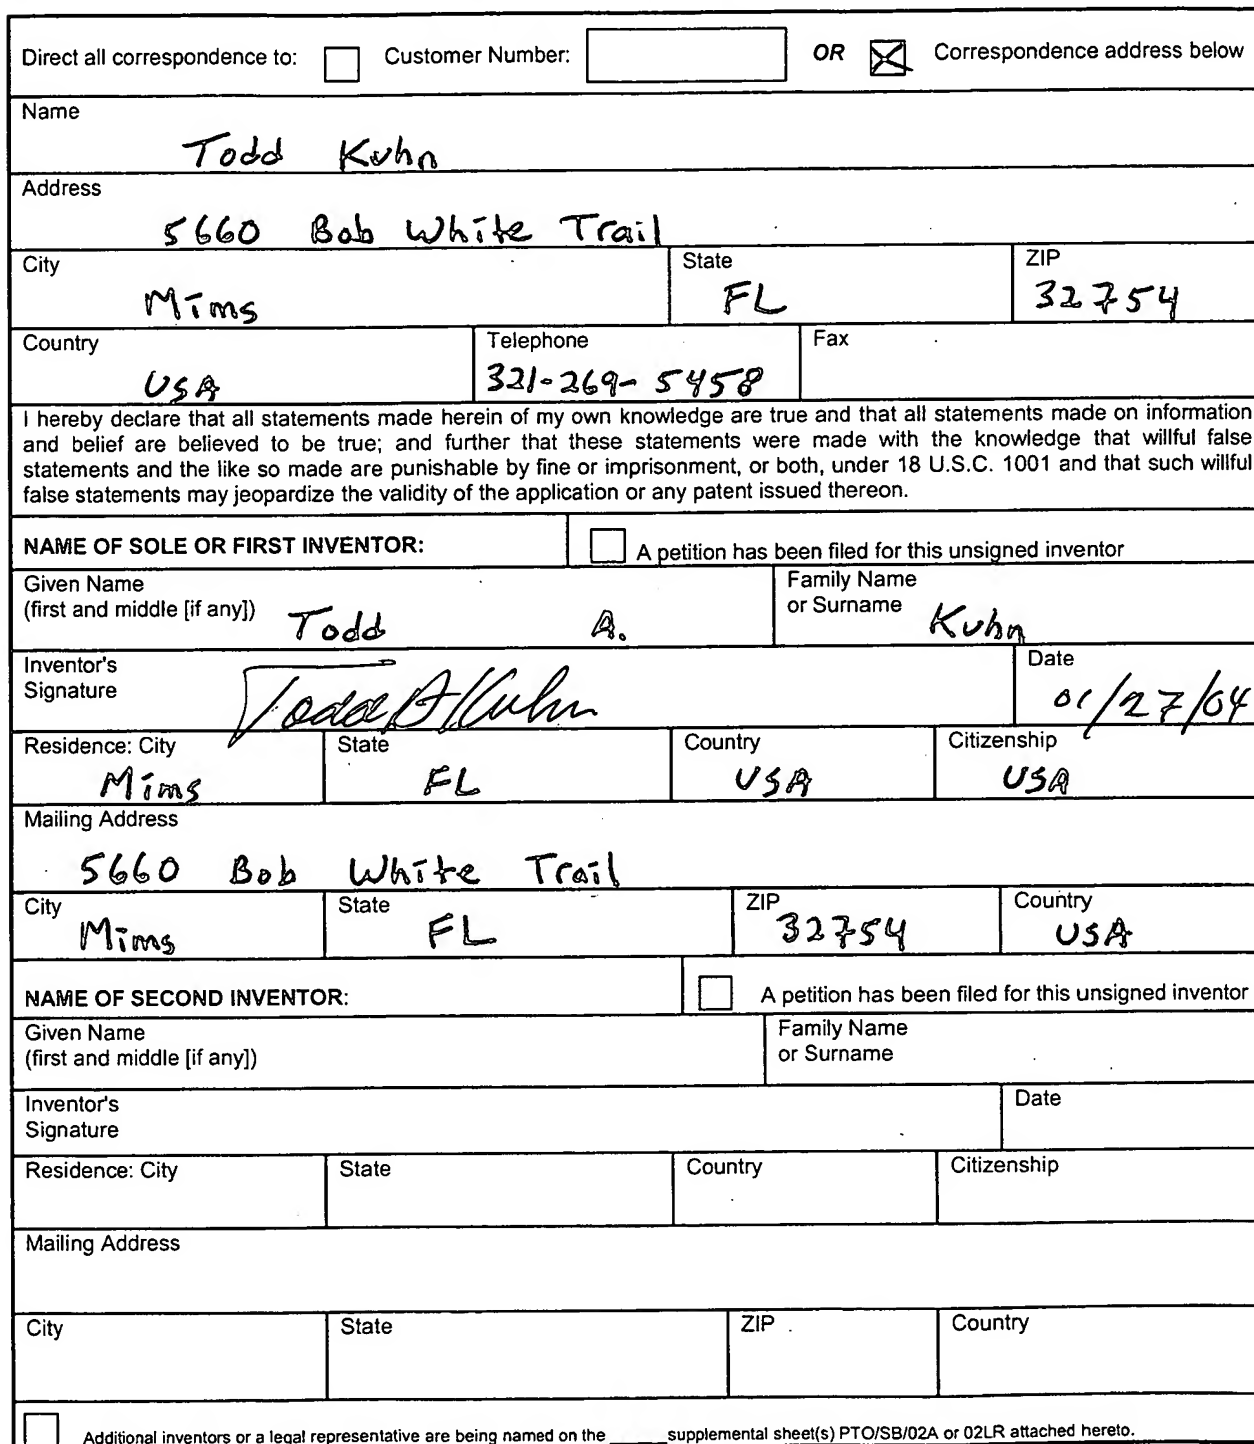 Direct all correspondence to: Customer Number: OR Correspondence address below
Name
Todd Kuhn
Address
5660 Bob White Trail
City State ZIP
Mims FL 32754
Country Telephone Fax
USA 321-269-5458
I hereby declare that all statements made herein of my own knowledge are true and that all statements made on information
and belief are believed to be true; and further that these statements were made with the knowledge that willful false
statements and the like so made are punishable by fine or imprisonment, or both, under 18 U.S.C. 1001 and that such willful
false statements may jeopardize the validity of the application or any patent issued thereon.
NAME OF SOLE OR FIRST INVENTOR: A petition has been filed for this unsigned inventor
Given Name Family Name
(first and middle [if any]) Todd A. or Surname Kuhn
Inventor's Date
Signature Todd A Kuhn 01/27/04
Residence: City State Country Citizenship
Mims FL USA USA
Mailing Address
5660 Bob White Trail
City State ZIP Country
Mims FL 32754 USA
NAME OF SECOND INVENTOR: A petition has been filed for this unsigned inventor
Given Name Family Name
(first and middle [if any]) or Surname
Inventor's Date
Signature
Residence: City State Country Citizenship
Mailing Address
City State ZIP Country
Additional inventors or a legal representative are being named on the _____ supplemental sheet(s) PTO/SB/02A or 02LR attached hereto.